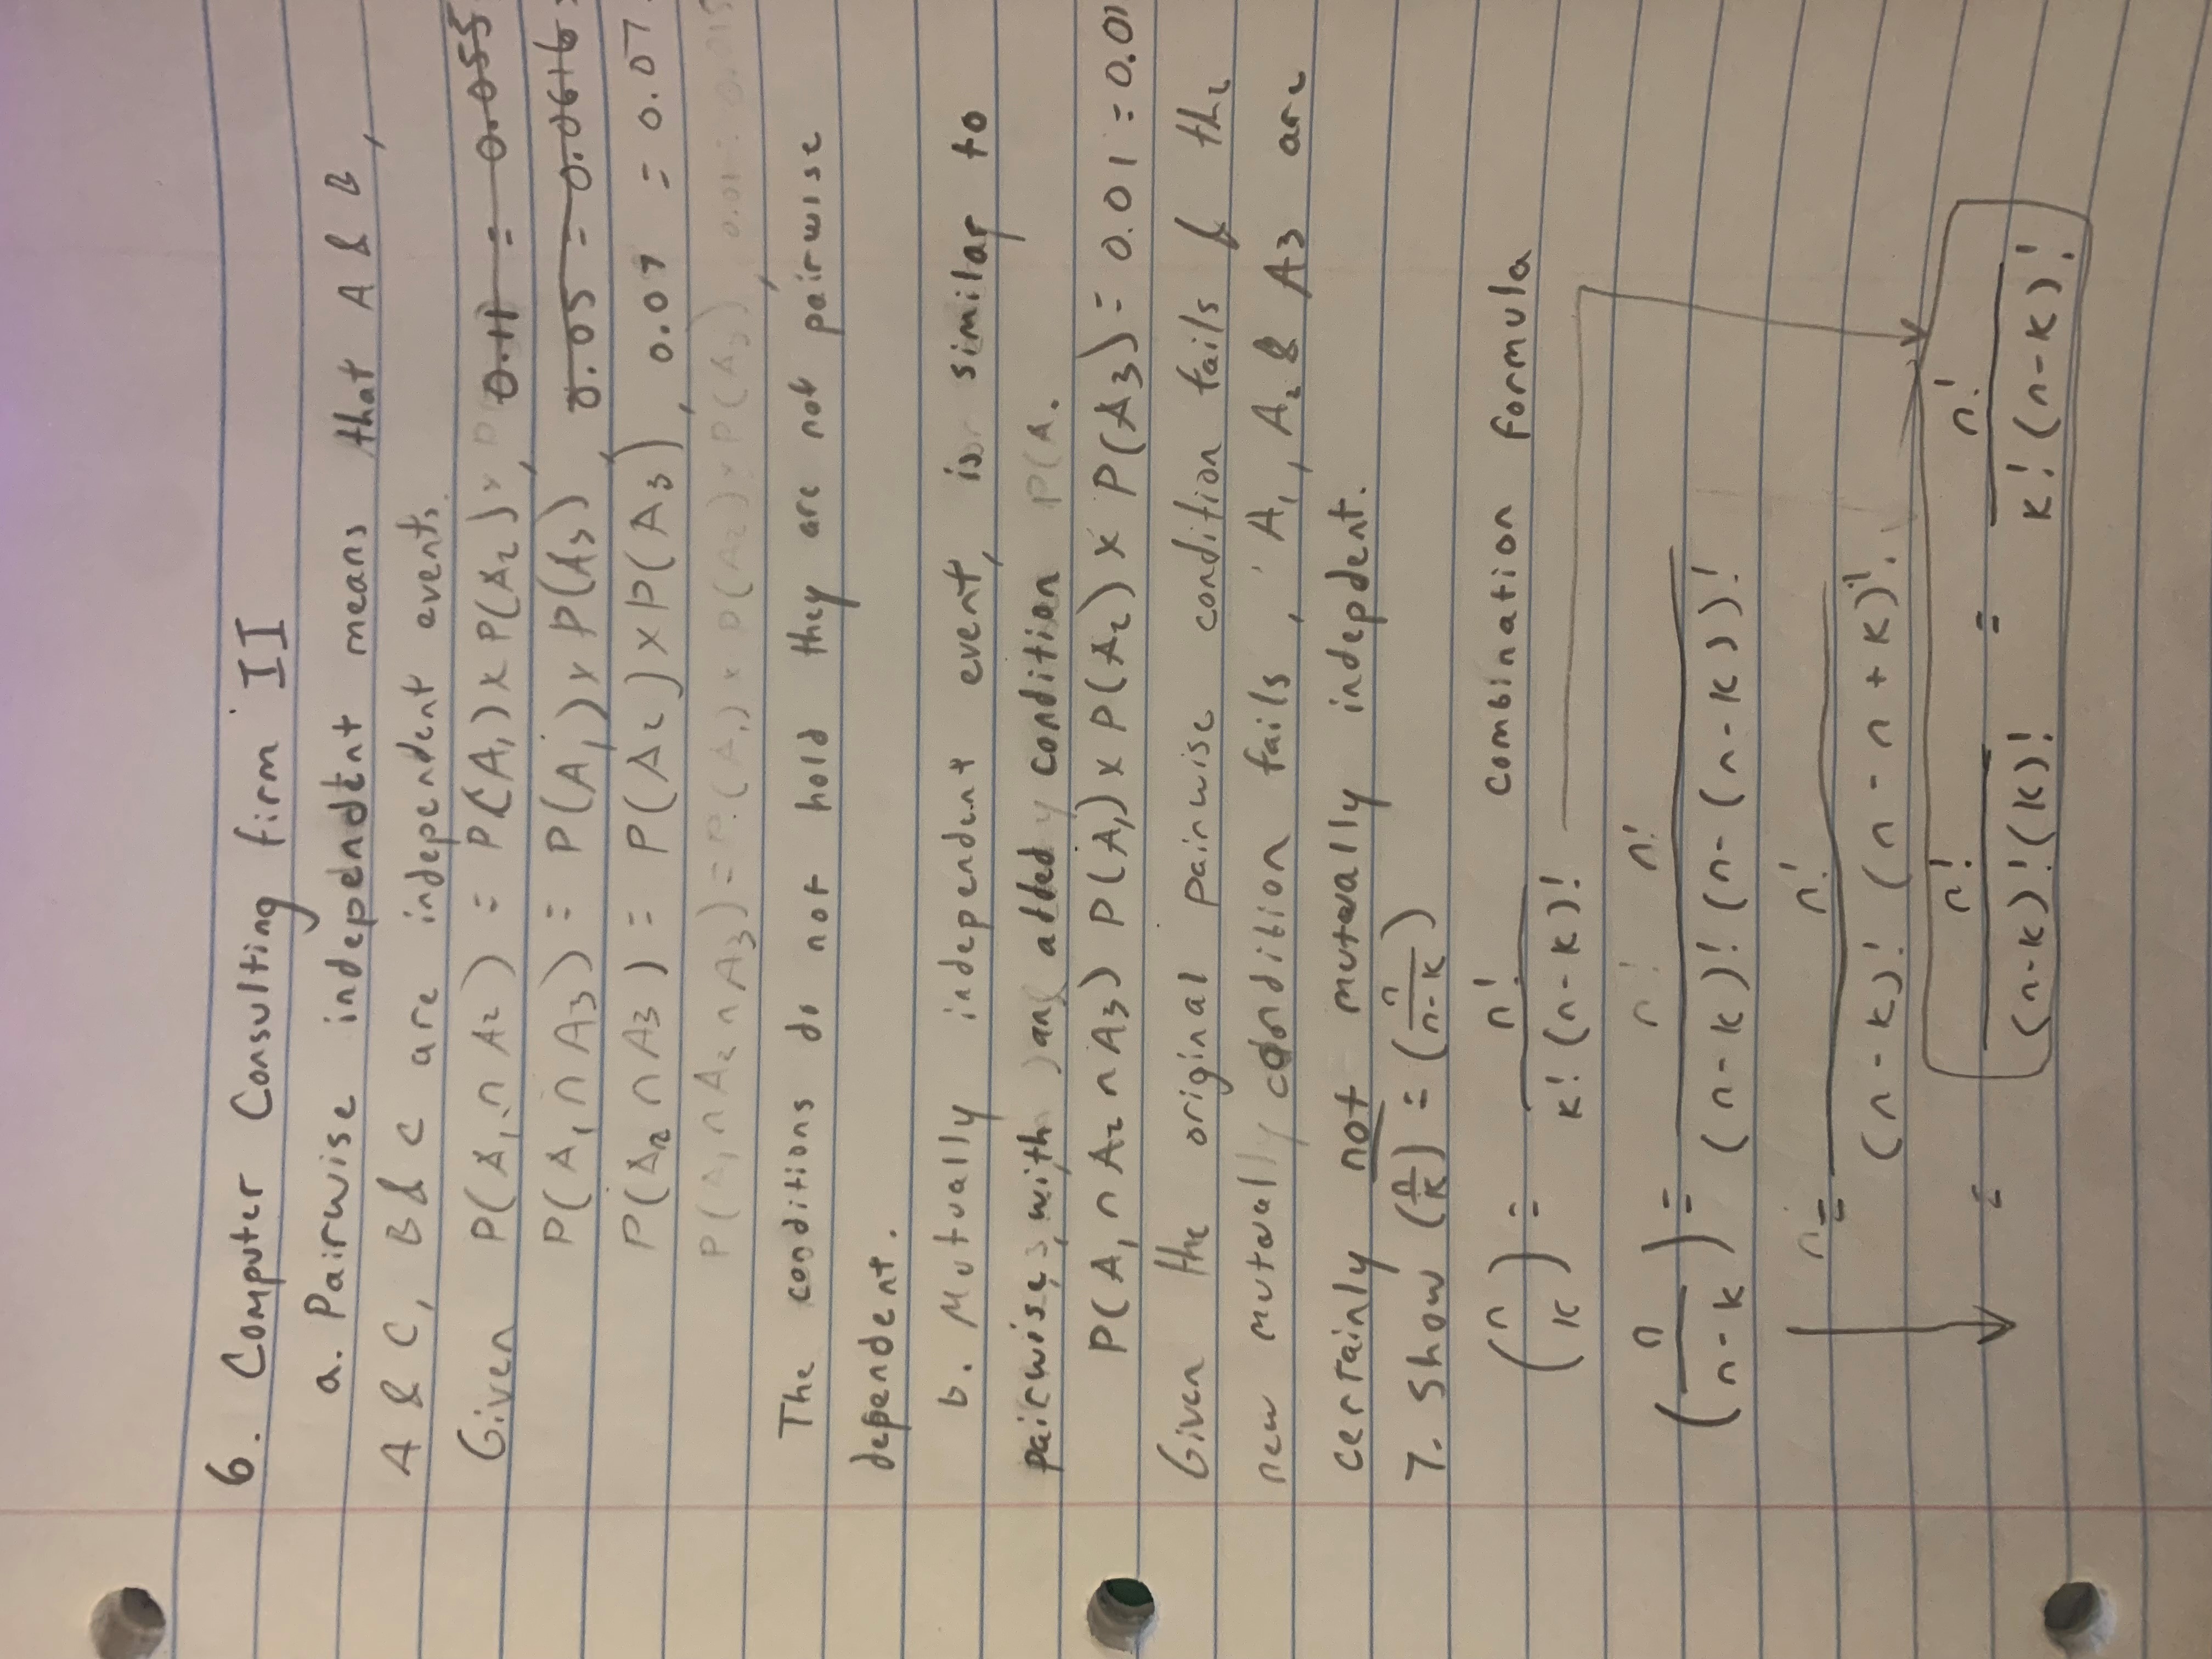 6. Computer Consulting firm II
a. Pairwise independent means that A & B,
A & C, B & C are independent events.
Given P(A₁ ∩ A₂) = P(A₁) x P(A₂), 0.11 = 0.055
P(A₁ ∩ A₃) = P(A₁) x P(A₃), 0.05 = 0.0616
P(A₂ ∩ A₃) = P(A₂) x P(A₃), 0.07 = 0.07
P(A₁ ∩ A₂ ∩ A₃) = P(A₁) x P(A₂) x P(A₃), 0.01
The conditions do not hold they are not pairwise
dependent.
b. Mutually independent event, is similar to
pairwise, with an added condition P(A.
P(A₁ ∩ A₂ ∩ A₃) P(A₁) x P(A₂) x P(A₃) = 0.01 = 0.01
Given the original pairwise condition fails & the
new mutually condition fails, A₁, A₂ & A3 are
certainly not mutually indepdent.
7. Show (n/k) = (n/n-k)
(n k) = n! / k! (n-k)! combination formula
(n/n-k) = n! n! / (n-k)! (n-(n-k))!
n = n! / (n-k)! (n-n+k)!
= n! / (n-k)!(k)! = n! / k! (n-k)!